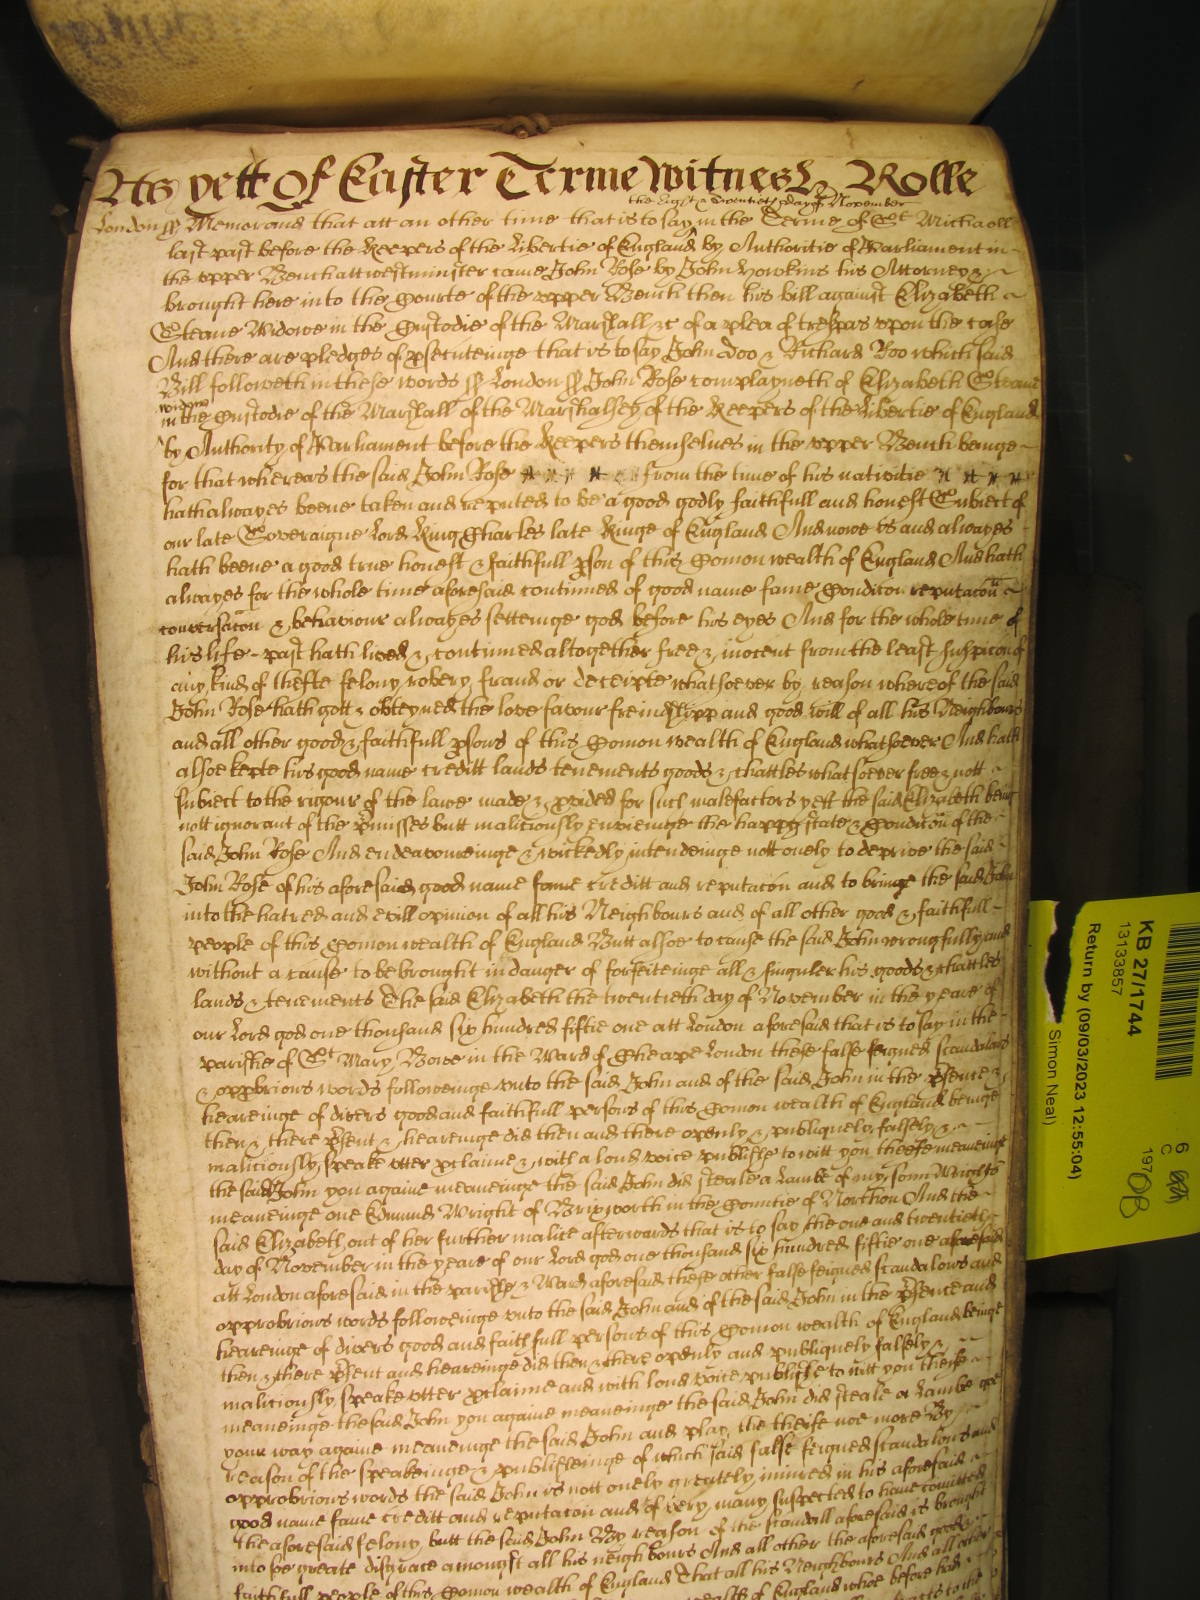 As yett Of Easter Terme Witness Rolle
the eight & twentieth day of November
London ss Memorand that att an other time that is to say in the Terme of St Michaell
last past before the Keepers of the Libertie of England by Authoritie of Parliament in
the upper Bench att Westminster came John Rose by John Howkins his Attorney &
brought here into the Courte of the upper Bench then his bill against Elizabeth
Steane Widowe in the Custodie of the Marshall &c of a plea of trespas upon the case
And there are pledges of psecuteinge that is to say John Doo & Richard Roo which said
Bill followeth in these words ss London ss John Rose complayneth of Elizabeth Steane
widowe
in the Custodie of the Marshall of the Marshalsey of the Keepers of the Libertie of England
by Authority of Parliament before the Keepers themselves in the upper Bench beinge
for that whereas the said John Rose from the time of his nativitie
hath alwayes beene taken and reputed to be a good godly faithfull and honest Subiect of
our late Soveraigne Lord King Charles late Kinge of England And nowe is and alwayes
hath beene a good true honest & faithfull pson of this Comon wealth of England And hath
alwayes for the whole time aforesaid continued of good name fame Condicon reputacon
conversacon & behaviour alwayes setteinge god before his eyes And for the whole time of
his life past hath lived & continued altogether free & inocent from the least suspicion of
any kind of thefte felony robery fraud or deceipte whatsoever by reason whereof the said
John Rose hath gott & obteyned the love favour freindshipp and good will of all his Neighbours
and all other good & faithfull psons of this Comon wealth of England whatsoever And hath
alsoe kepte his good name creditt lands tenements goods & chattles whatsoever free & nott
subiect to the rigour of the lawe made & pvided for such malefactors yett the said Elizabeth being
nott ignorant of the pmisses butt maliciously envieinge the happy state & Condicon of the
said John Rose And endeavoureinge & wickedly intendeinge nott onely to deprive the said
John Rose of his aforesaid good name fame creditt and reputacon and to bringe the said John
into the hatred and evill opinion of all his Neighbours and of all other good & faithfull
people of this Comon wealth of England Butt alsoe to cause the said John wrongfully and
without a cause to be brought in danger of forfeiteinge all & singuler his goods & chattles
lands & tenements The said Elizabeth the twentieth day of November in the yeare of
our Lord god one thousand six hundred fiftie one att London aforesaid that is to say in the
parishe of St Mary Bowe in the Ward of Cheape London these false feigned scandalous
& opprobrious words followeinge unto the said John and of the said John in the psence &
heareinge of divers good and faithfull persons of this Comon wealth of England beinge
then & there psent & heareinge did then and there openly & publiquely falsely &
maliciously speake utter pclaime & with a loud voice publishe to witt you theife meaneinge
the said John you againe meaneinge the said John did steale a Lambe of my sonn Wrights
meaneinge one Edmund Wright of Brixworth in the Countie of Northton And the
said Elizabeth out of her further malice afterwards that is to say the one and twentieth
day of November in the yeare of our Lord god one thousand six hundred fiftie one aforesaid
att London aforesaid in the parishe & Ward aforesaid these other false feigned scandalous and
opprobrious words followeinge unto the said John and of the said John in the psence and
heareinge of divers good and faithfull persons of this Comon wealth of England beinge
then & there psent and heareinge did then & there openly and publiquely falsely &
maliciously speake utter pclaime and with loud voice publishe to witt you theife
meaneinge the said John you againe meaneinge the said John did steale a Lambe goe
your way againe meaneinge the said John and play the theife noe more By
reason of the speakeinge & publisheinge of which said false feigned scandalous and
opprobrious words the said John is nott onely greately iniured in his aforesaid
good name fame creditt and reputacon and of very many suspected to have comitted
the aforesaid felony butt the said John By reason of the scandall aforesaid is brought
into soe greate disgrace amongst all his neighbours And all other the aforesaid good
faithfull people of this Comon wealth of England That all his Neighbours And all other
of England whoe before had
KB 27/1744
13133857
Return by (09/03/2023 12:55:04)
Simon Neal)
6
C
1908